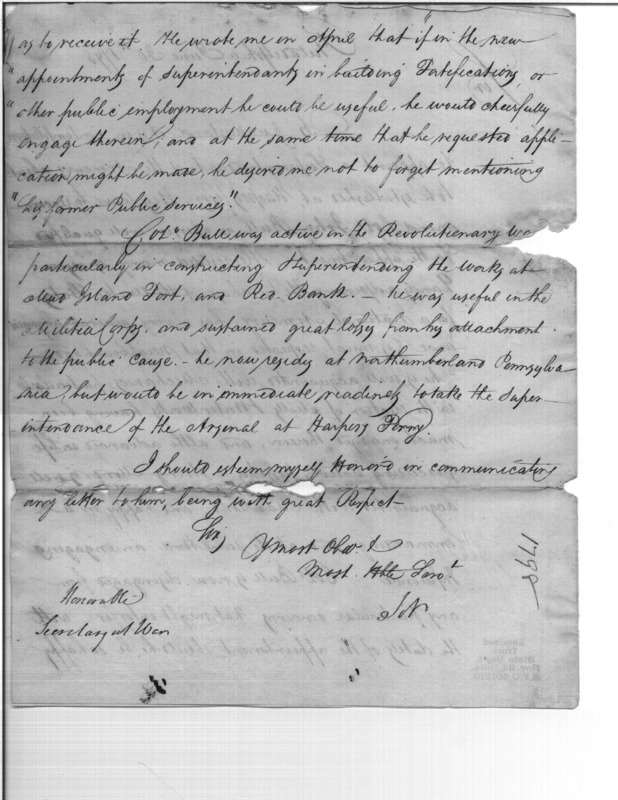 as to receive it He wrote me in April that "if in the new
"appointments of Superintendants in building Fortifications, or
"other public employment he could be useful, he would cheerfully
engage therein, and at the same time that he requested appli-
cation might be made, he desired me not to forget mentioning
"his former Public Services."
Colo. Bull was active in the Revolutionary
particularly in constructing & Superintending the Works at
Mud Island Fort, and Red Bank. — he was useful in the
Militia Corps, and sustained great losses from his attachment
to the public cause. — he now resides at Northumberland Pennsylva
nia, but would be in immediate readiness to take the Super-
intendance of the Arsenal at Harpers Ferry.
I should esteem myself Honor'd in communicating
any letter to him, being with great Respect —
Sir,
Y most Obed. &
Most Hble Servt
Honorable
Secretary at War
1798